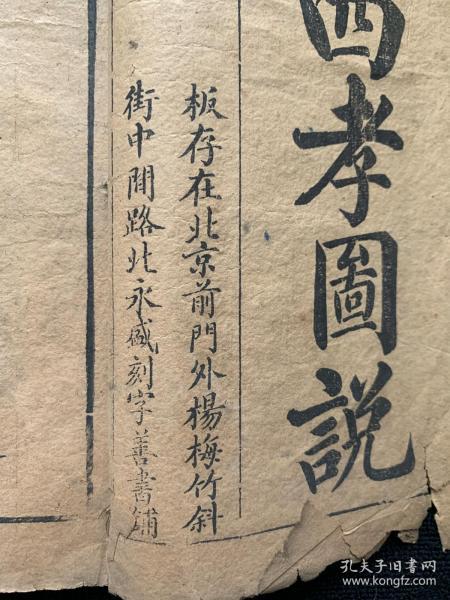 四孝圖說
板存在北京前門外楊梅竹斜
街中間路北永盛刻字善書鋪
孔夫子旧书网
www.kongfz.com